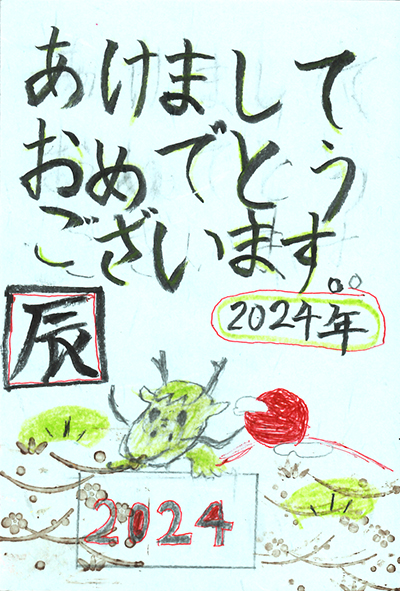 あけまして
おめでとう
ございます。
2024年
辰
2024